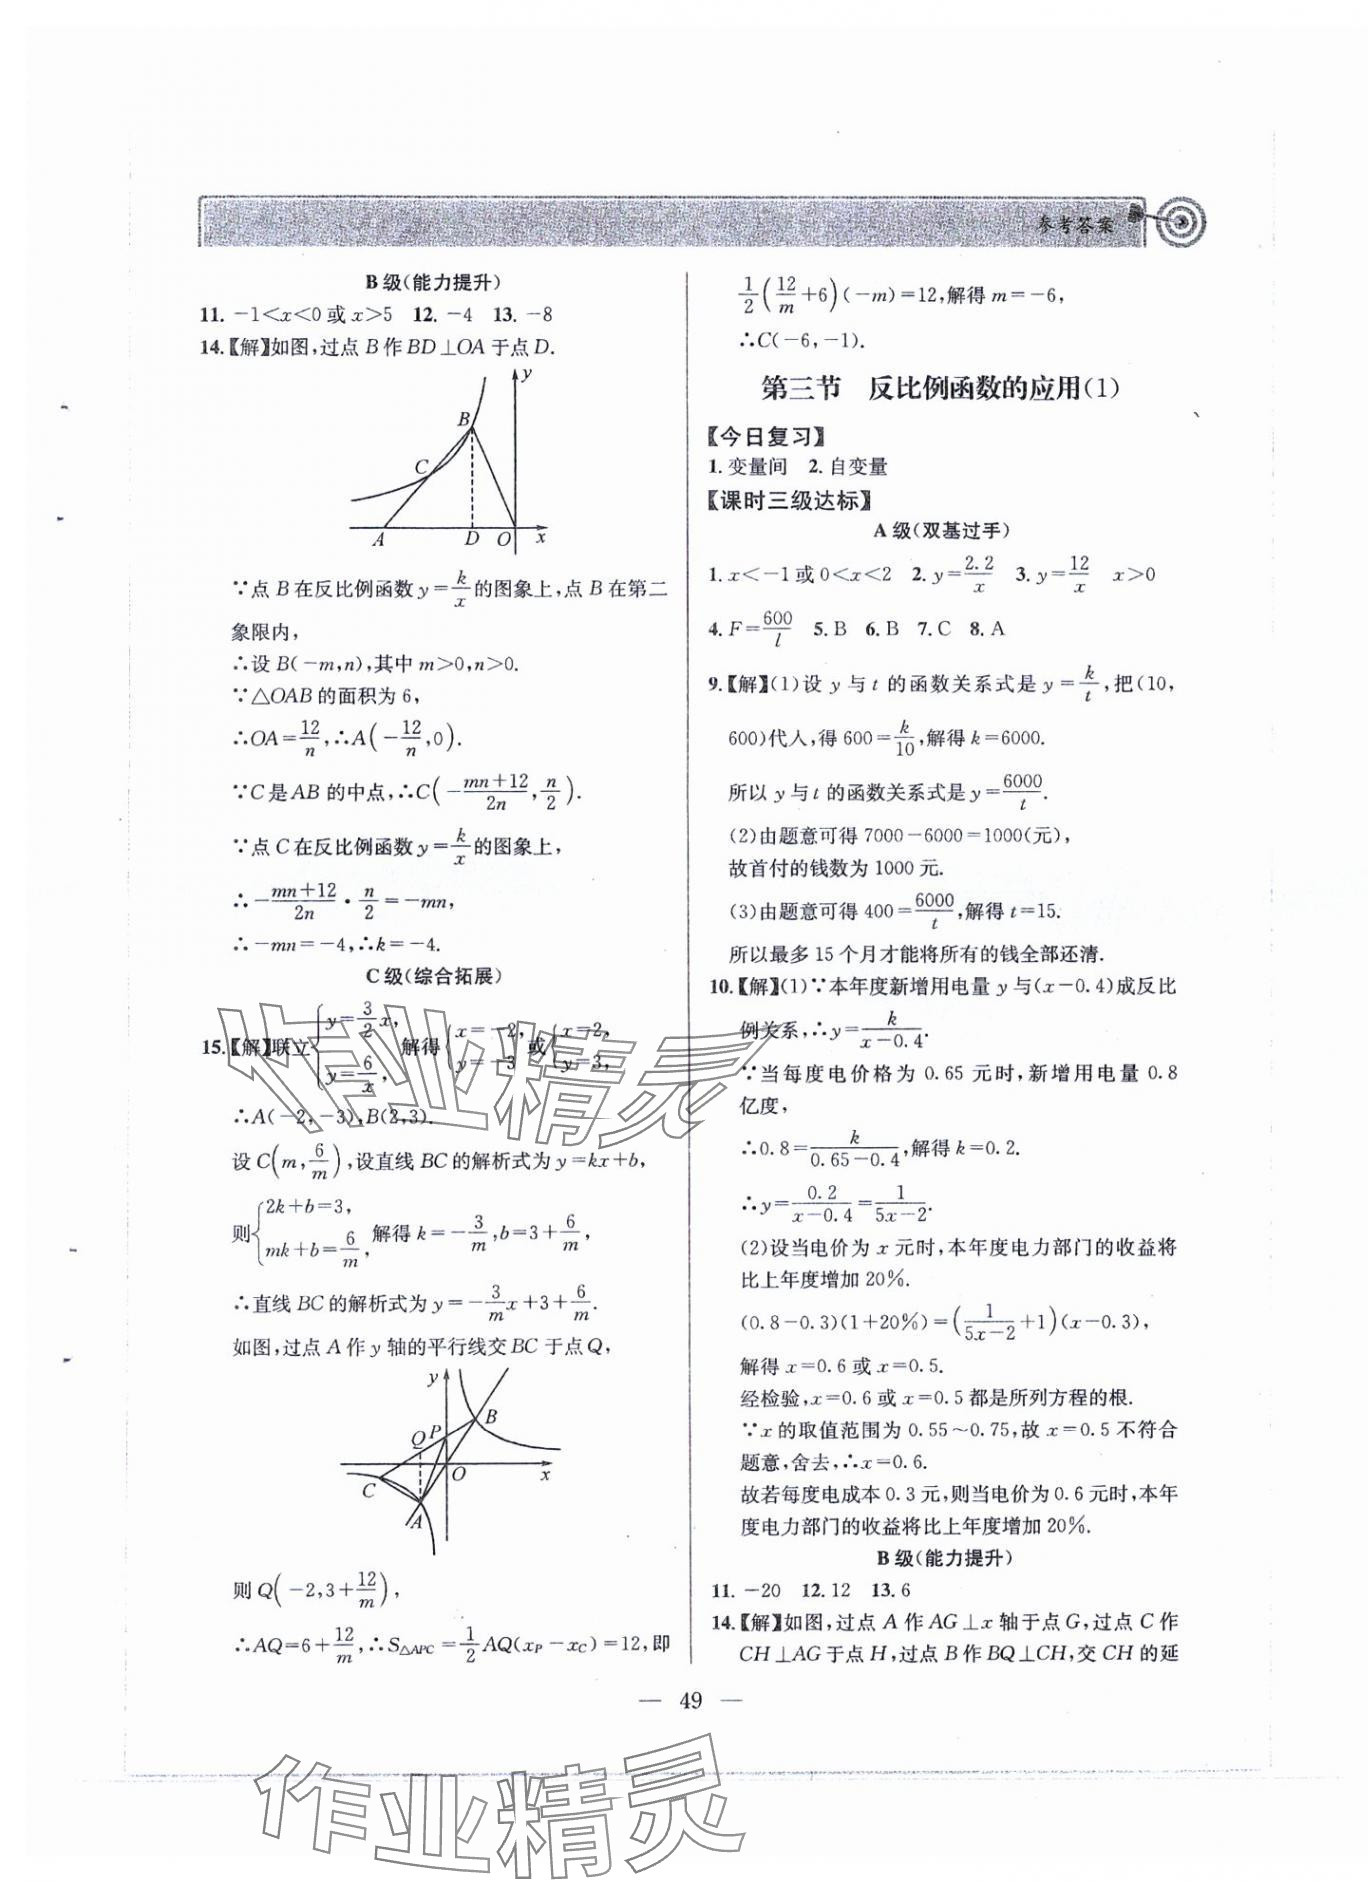 参考答案
B级(能力提升)
11. -1<x<0或x>5 12. -4 13. -8
14.【解】如图,过点B作BD⊥OA于点D.
y
B
C
A D O x
∵点B在反比例函数y=k/x的图象上,点B在第二
象限内,
∴设B(-m,n),其中m>0,n>0.
∵△OAB的面积为6,
∴OA=12/n,∴A(-12/n,0).
∵C是AB的中点,∴C(-(mn+12)/2n,n/2).
∵点C在反比例函数y=k/x的图象上,
∴-(mn+12)/2n·n/2=-mn,
∴-mn=-4,∴k=-4.
C级(综合拓展)
15.【解】联立{y=3/2x, y=6/x, 解得{x=-2, y=-3 或{x=2, y=3,
∴A(-2,-3),B(2,3).
设C(m,6/m),设直线BC的解析式为y=kx+b,
则{2k+b=3, mk+b=6/m, 解得k=-3/m,b=3+6/m,
∴直线BC的解析式为y=-3/mx+3+6/m.
如图,过点A作y轴的平行线交BC于点Q,
y
B
Q P
O x
C
A
则Q(-2,3+12/m),
∴AQ=6+12/m,∴S△APC=1/2AQ(xP-xC)=12,即
1/2(12/m+6)(-m)=12,解得m=-6,
∴C(-6,-1).
第三节 反比例函数的应用(1)
【今日复习】
1.变量间 2.自变量
【课时三级达标】
A级(双基过手)
1. x<-1或0<x<2 2. y=2.2/x 3. y=12/x x>0
4. F=600/l 5. B 6. B 7. C 8. A
9.【解】(1)设y与t的函数关系式是y=k/t,把(10,
600)代人,得600=k/10,解得k=6000.
所以y与t的函数关系式是y=6000/t.
(2)由题意可得7000-6000=1000(元),
故首付的钱数为1000元.
(3)由题意可得400=6000/t,解得t=15.
所以最多15个月才能将所有的钱全部还清.
10.【解】(1)∵本年度新增用电量y与(x-0.4)成反比
例关系,∴y=k/(x-0.4).
∵当每度电价格为0.65元时,新增用电量0.8
亿度,
∴0.8=k/(0.65-0.4),解得k=0.2.
∴y=0.2/(x-0.4)=1/(5x-2).
(2)设当电价为x元时,本年度电力部门的收益将
比上年度增加20%.
(0.8-0.3)(1+20%)=(1/(5x-2)+1)(x-0.3),
解得x=0.6或x=0.5.
经检验,x=0.6或x=0.5都是所列方程的根.
∵x的取值范围为0.55~0.75,故x=0.5不符合
题意,舍去,∴x=0.6.
故若每度电成本0.3元,则当电价为0.6元时,本年
度电力部门的收益将比上年度增加20%.
B级(能力提升)
11. -20 12. 12 13. 6
14.【解】如图,过点A作AG⊥x轴于点G,过点C作
CH⊥AG于点H,过点B作BQ⊥CH,交CH的延
— 49 —
作业精灵
作业精灵